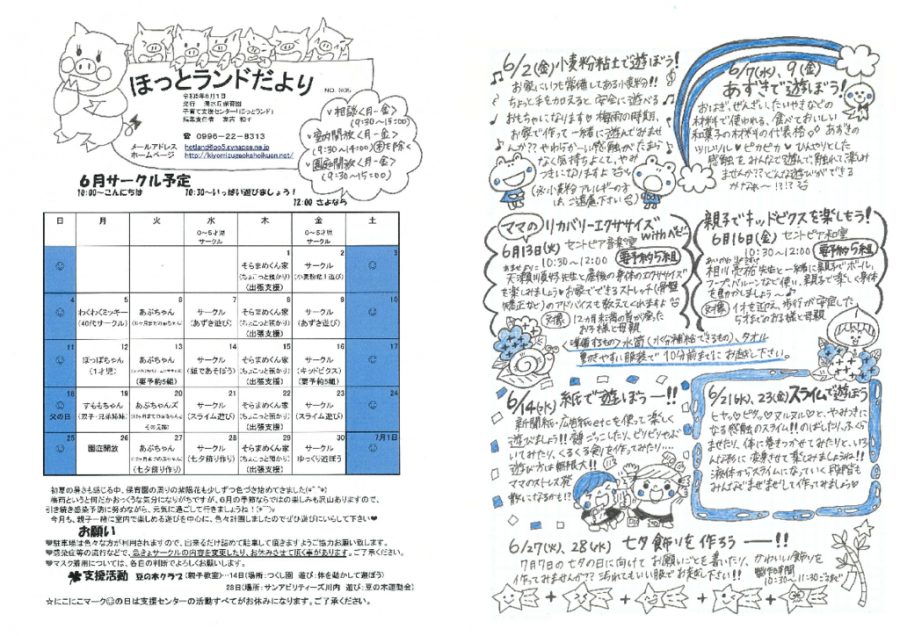 ほっとランドだより
NO. NO5.
令和5年6月1日
発行 清水丘保育園
子育て支援センター「ほっとランド」
☎ 0996-22-8313
メールアドレス hotland@po5.synapse.ne.jp
ホームページ http://kiyomizugaokahoikuen.net/
♡相談<月〜金>
(9:30〜15:00)
♡室内開放<月〜金>
(9:30〜14:00)
♡園庭開放<月〜金>
(9:30〜15:00)
6月サークル予定
10:00〜こんにちは 10:30〜いっぱい遊びましょう!
12:00 さよなら
日 月 火 水 木 金 土
0〜5才児 サークル 0〜5才児 サークル
1 2 3
☺ そらまめくん家 サークル ☺
(ちょこっと預かり) (小麦粉粘土遊び)
(出張支援)
4 5 6 7 8 9 10
☺ わくわくミッキー あぷちゃん サークル そらまめくん家 サークル ☺
(40代サークル) (あずき遊び) (ちょこっと預かり) (あずき遊び)
(出張支援)
11 12 13 14 15 16 17
☺ ほっぽちゃん あぷちゃん サークル そらまめくん家 サークル ☺
(1才児) (紙であそぼう) (ちょこっと預かり) (キッドビクス)
(要予約5組) (出張支援) (要予約5組)
18 19 20 21 22 23 24
☺ すももちゃん あぷちゃんズ サークル そらまめくん家 サークル ☺
父の日 (双子・兄弟姉妹) (スライム遊び) (ちょこっと預かり) (スライム遊び)
(出張支援)
25 26 27 28 29 30 7月1日
☺ 園庭開放 あぷちゃん サークル そらまめくん家 サークル ☺
(七夕飾り作り) (七夕飾り作り) (ちょこっと預かり) ゆっくり遊ぼう
(出張支援)
初夏の暑さも感じる中、保育園の周りの紫陽花も少しずつ色づき始めてきました(*^^*)
梅雨というと何だかおっくうな気分になりがちですが、6月の季節ならではの楽しみも沢山ありますので、
引き続き感染予防に努めながら、元気に過ごして行きましょうね!(*^^)v
今月も、親子一緒に室内で楽しめる遊びを中心に、色々計画しましたのでぜひ遊びにいらして下さい♥
お願い
♥駐車場は色々な方が利用されますので、出来るだけ詰めて駐車して頂きますようご協力お願い致します。
♥感染症等の流行などで、急きょサークルの内容を変更したり、お休みさせて頂く事があります。ご了承ください。
♥マスク着用については、各自の判断でよろしくお願いします。
支援活動 豆の木クラブ(親子教室)…14日(場所:つくし園 遊び:体を動かして遊ぼう)
28日(場所:サンアビリティーズ川内 遊び:豆の木運動会)
☆にこにこマーク☺の日は支援センターの活動すべてがお休みになります。ご了承ください。
6/2(金)小麦粉粘土で遊ぼう!
お家にいつも常備してある小麦粉!!
ちょっと手を加えると安全に遊べる
おもちゃになりますよ 梅雨の時期、
お家で作って一緒に遊んでみませ
んか?? やわらか〜い感触がたまら
なく気持ちよくて、やみ
つきになりますよ
(※小麦粉アレルギーの方
は、ご遠慮下さい)
6/7(水)、9(金)
あずきで遊ぼう!
おはぎ、ぜんざい、たいやきなどの
材料で使われる、食べておいしい
和菓子の材料の代表格。あずきの
ツルツル♡ピカピカ♡ひんやりとした
感触をみんなで遊んで、触れて楽しみ
ませんか?? どんな遊びができる
かなぁ〜!?!?
ママのリカバリーエクササイズ withベビー
6月13日(火) セントピア音楽室
10:30〜12:00 要予約5組
を楽しみましょう♥お家でできるストレッチ(骨盤
矯正など)のアドバイスも教えてくれますよ
対象 12ヵ月未満の首が座った
お子様と母親
<準備するもの> 水筒(水分補給できるもの)、タオル
動きやすい服装で10分前までにお越し下さい。
親子でキッドビクスを楽しもう!
6月16日(金) セントピア和室
10:30〜12:00 要予約5組
先生と一緒に親子でボール、
フープ、バルーンなど使い、親子で楽しく身体
を動かしましょう〜♪
対象 1才を迎え、歩行が安定した
5才までのお子様と母親
6/14(水) 紙で遊ぼうー!!
新聞紙・広告紙etcを使って楽しく
遊びましょう!!
遊び方は無限大!!
ママのストレス発
散になるかも!?
6/21(水)、23(金)スライムで遊ぼう
なる感触のスライム!! のばしたり、ふくら
ませたり、体に巻きつかせてみたりと、いろ
んな形に変身させて楽しみましょうね!!
液体からスライムになっていく段階も
みんなでまぜまぜして作ってみましょう♡
6/27(火)、28(水) 七夕飾りを作ろうー!!
7月7日の七夕の日に向けてお願いごとを書いたり、かわいい飾りを
作ってみませんか?? 汚れてもいい服でお越し下さい!!
製作時間
10:30〜11:30ごろまで